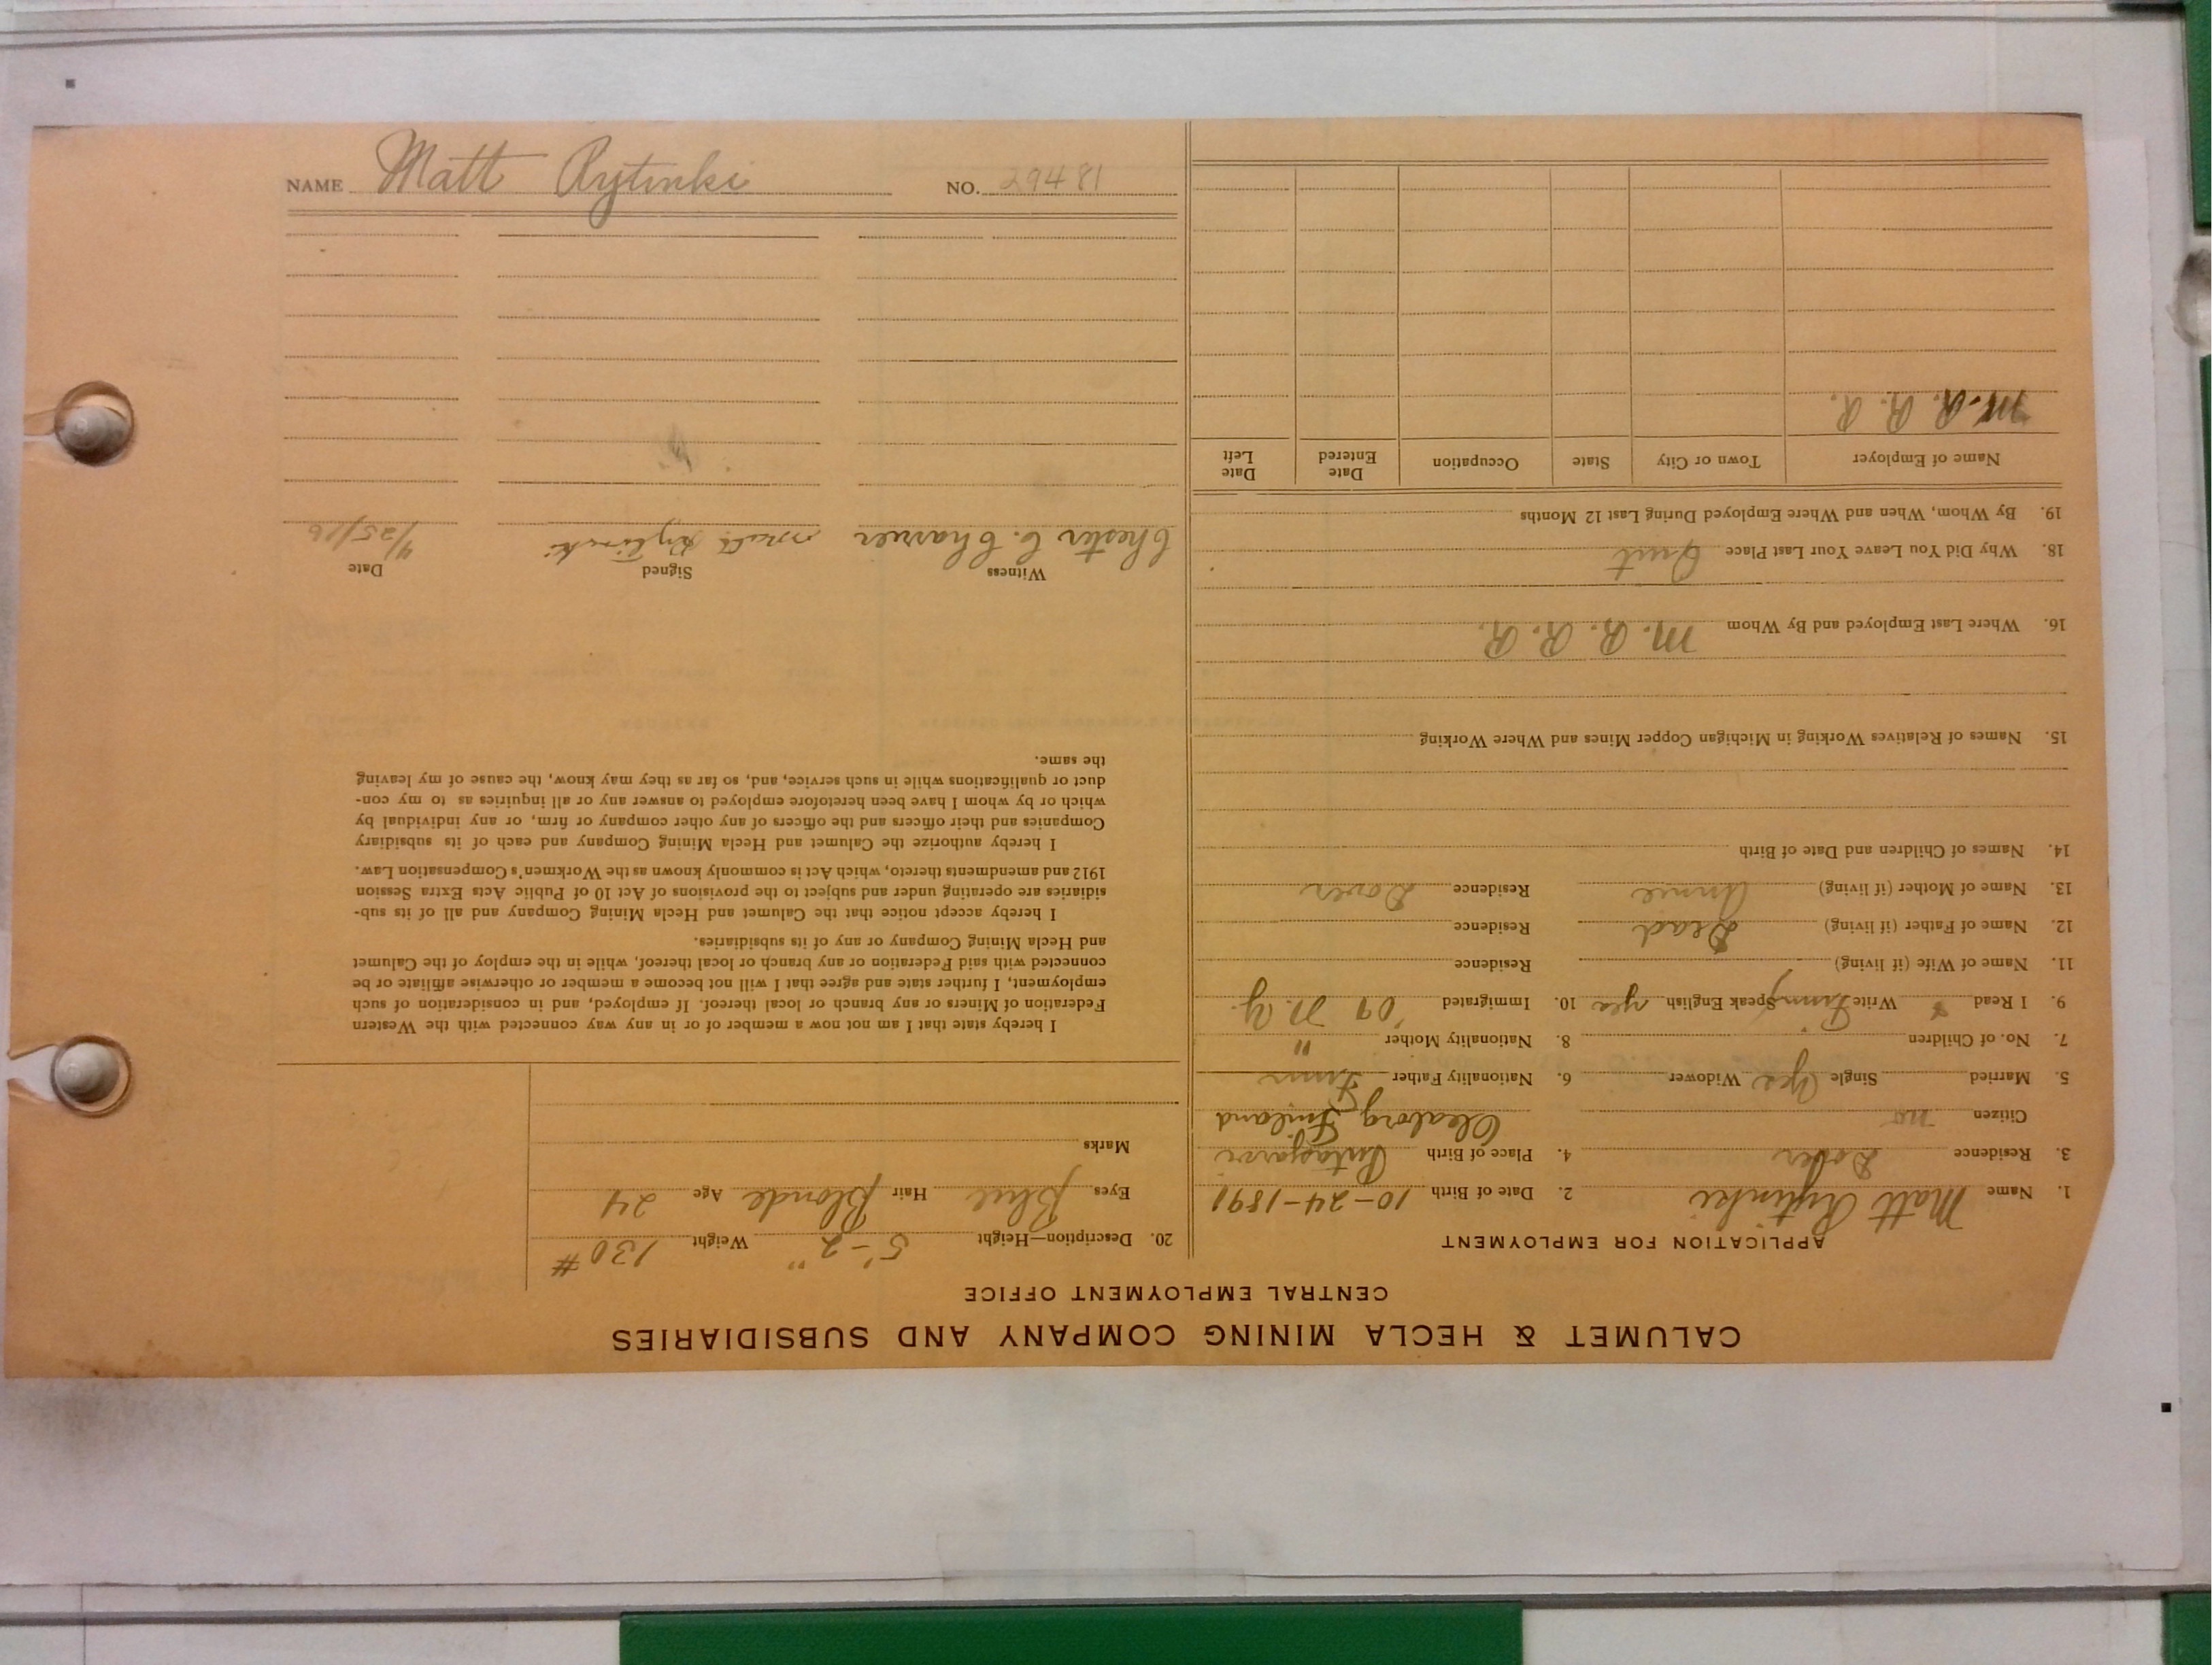 CALUMET & HECLA MINING COMPANY AND SUBSIDIARIES
CENTRAL EMPLOYMENT OFFICE
APPLICATION FOR EMPLOYMENT
1. Name Matt Rytinki 2. Date of Birth 10-24-1891
3. Residence Dover 4. Place of Birth
Citizen no Uleaborg Finland
5. Married Single Yes Widower 6. Nationality Father Finn
7. No. of Children 8. Nationality Mother "
9. I Read " Write Finny Speak English yes 10. Immigrated '09 N.Y.
11. Name of Wife (if living) Residence
12. Name of Father (if living) Dead Residence
13. Name of Mother (if living) Annie Residence Dover
14. Names of Children and Date of Birth
15. Names of Relatives Working in Michigan Copper Mines and Where Working
16. Where Last Employed and By Whom M. R. R. R.
18. Why Did You Leave Your Last Place Quit
19. By Whom, When and Where Employed During Last 12 Months
Name of Employer Town or City State Occupation Date Entered Date Left
M. R. R. R.
20. Description—Height 5'-2" Weight 130#
Eyes Blue Hair Blonde Age 24
Marks
I hereby state that I am not now a member of or in any way connected with the Western
Federation of Miners or any branch or local thereof. If employed, and in consideration of such
employment, I further state and agree that I will not become a member or otherwise affiliate or be
connected with said Federation or any branch or local thereof, while in the employ of the Calumet
and Hecla Mining Company or any of its subsidiaries.
I hereby accept notice that the Calumet and Hecla Mining Company and all of its sub-
sidiaries are operating under and subject to the provisions of Act 10 of Public Acts Extra Session
1912 and amendments thereto, which Act is commonly known as the Workmen's Compensation Law.
I hereby authorize the Calumet and Hecla Mining Company and each of its subsidiary
Companies and their officers and the officers of any other company or firm, or any individual by
which or by whom I have been heretofore employed to answer any or all inquiries as to my con-
duct or qualifications while in such service, and, so far as they may know, the cause of my leaving
the same.
Witness Signed Date
Chester C. Charrier Matt Rytinki 4/25/16
NAME Matt Rytinki NO. 29481